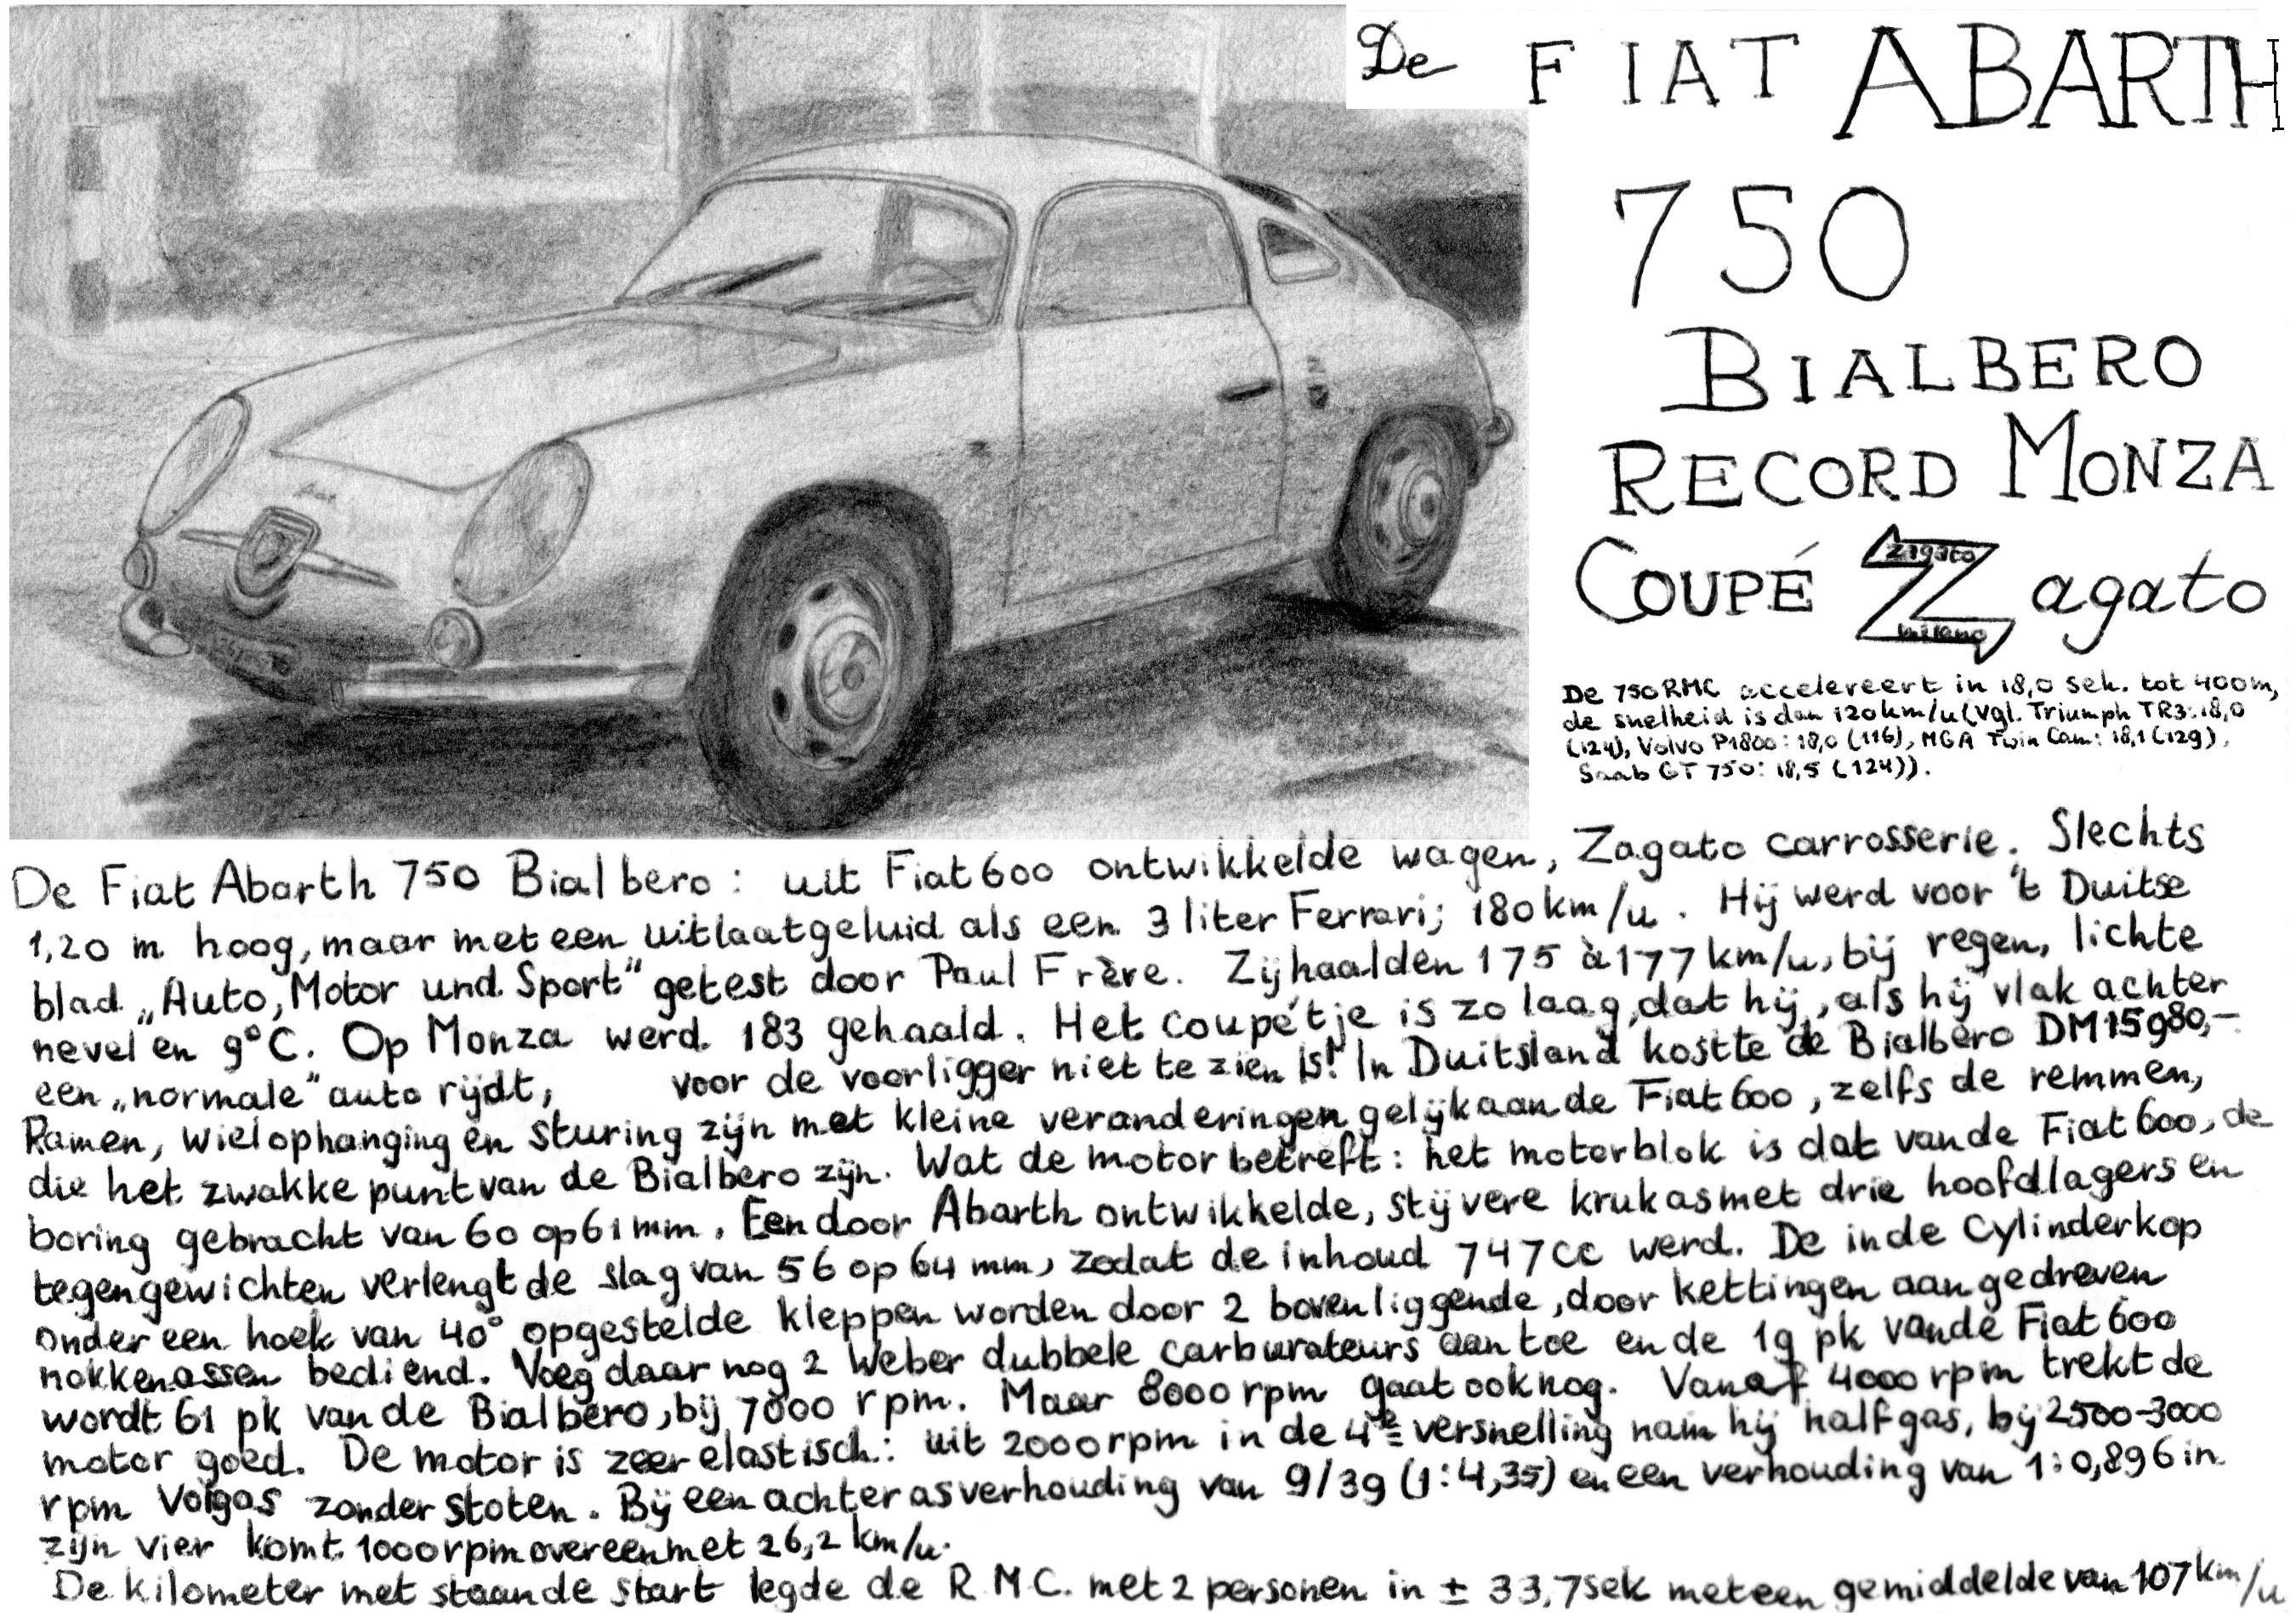 De FIAT ABARTH
750
BIALBERO
RECORD MONZA
COUPÉ Zagato
zagato
milano
De 750RMC accelereert in 18,0 sek. tot 400m,
de snelheid is dan 120km/u (Vgl. Triumph TR3:18,0
(124), Volvo P1800: 18,0 (116), MGA Twin Cam: 18,1 (129),
Saab GT 750: 18,5 (124)).
De Fiat Abarth 750 Bialbero: uit Fiat 600 ontwikkelde wagen, Zagato carrosserie. Slechts
1,20 m hoog, maar met een uitlaatgeluid als een 3 liter Ferrari; 180km/u. Hij werd voor 't Duitse
blad „Auto, Motor und Sport" getest door Paul Frère. Zij haalden 175 à 177 km/u, bij regen, lichte
nevel en 9°C. Op Monza werd 183 gehaald. Het coupé'tje is zo laag, dat hij, als hij vlak achter
een „normale" auto rijdt, voor de voorligger niet te zien is! In Duitsland kostte de Bialbero DM15980,-
Ramen, wielophanging en sturing zijn met kleine veranderingen gelijk aan de Fiat 600, zelfs de remmen,
die het zwakke punt van de Bialbero zijn. Wat de motor betreft: het motorblok is dat van de Fiat 600, de
boring gebracht van 60 op 61 mm. Een door Abarth ontwikkelde, stijvere krukas met drie hoofdlagers en
tegengewichten verlengt de slag van 56 op 64 mm, zodat de inhoud 747cc werd. De in de Cylinderkop
onder een hoek van 40° opgestelde kleppen worden door 2 bovenliggende, door kettingen aangedreven
nokkenassen bediend. Voeg daar nog 2 Weber dubbele carburateurs aan toe en de 19 pk van de Fiat 600
wordt 61 pk van de Bialbero, bij 7000 rpm. Maar 8000 rpm gaat ook nog. Vanaf 4000 rpm trekt de
motor goed. De motor is zeer elastisch: uit 2000 rpm in de 4e versnelling nam hij half gas, bij 2500-3000
rpm Volgas zonder stoten. Bij een achterasverhouding van 9/39 (1:4,35) en een verhouding van 1:0,896 in
zijn vier komt 1000 rpm overeen met 26,2 km/u.
De kilometer met staande start legde de R M C. met 2 personen in ± 33,7 sek met een gemiddelde van 107 km/u